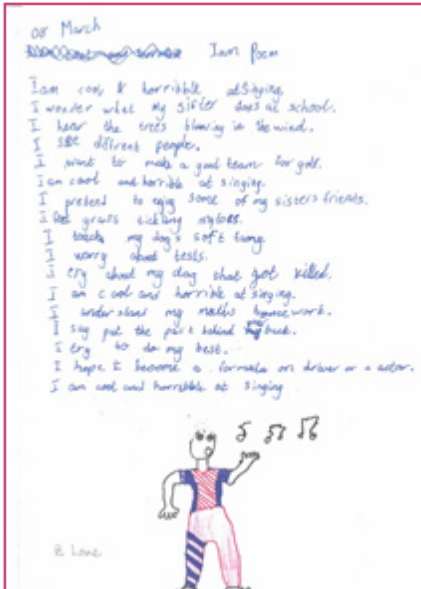 08 March
Iam Poem
Iam cool & horribble atSinging.
I wonder what my sister does at school.
I hear the trees blowing in the wind.
I see diffrent people.
I want to make a good team for golf.
iam cool and horrible at singing.
I pretend to enjoy some of my sisters friends.
I feel grass tickling my toes.
I touch my dog's soft
I worry about tests.
I cry about my dog that got killed.
I am cool and horrible at singing.
I understand my maths work.
I say put the past behind back.
I try to do my best.
I hope to become a formula on driver or a actor.
I am cool and horribble at singing
B Lane